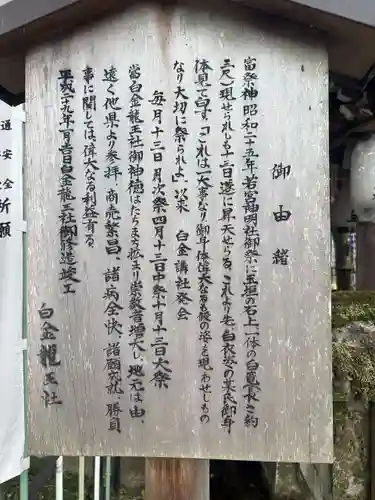 御由緒
当祭神昭和二十五年若宮神明社御祭に玉垣の石上一体の白竜（長さ約
三尺）現せられしも十三日遂に昇天せらる、これより先、白衣姿の某氏御身
体見て曰す、「これは一大事なり御身体偉大なる後の姿を現わせしもの
なり大切に祭られよ」以来 白金講社発会
毎月十三日月次祭四月十三日中祭十月十三日大祭
当白金龍王社御神徳はたちまち拡まり崇敬者増大し、地元は由、
遠く他県より参拝、商売繁昌、諸病全快、諸願成就、勝負
事に関しては、偉大なる利益有る
平成二十九年一月吉日白金龍王社御修造竣工
白金龍王社
通安全
祈願